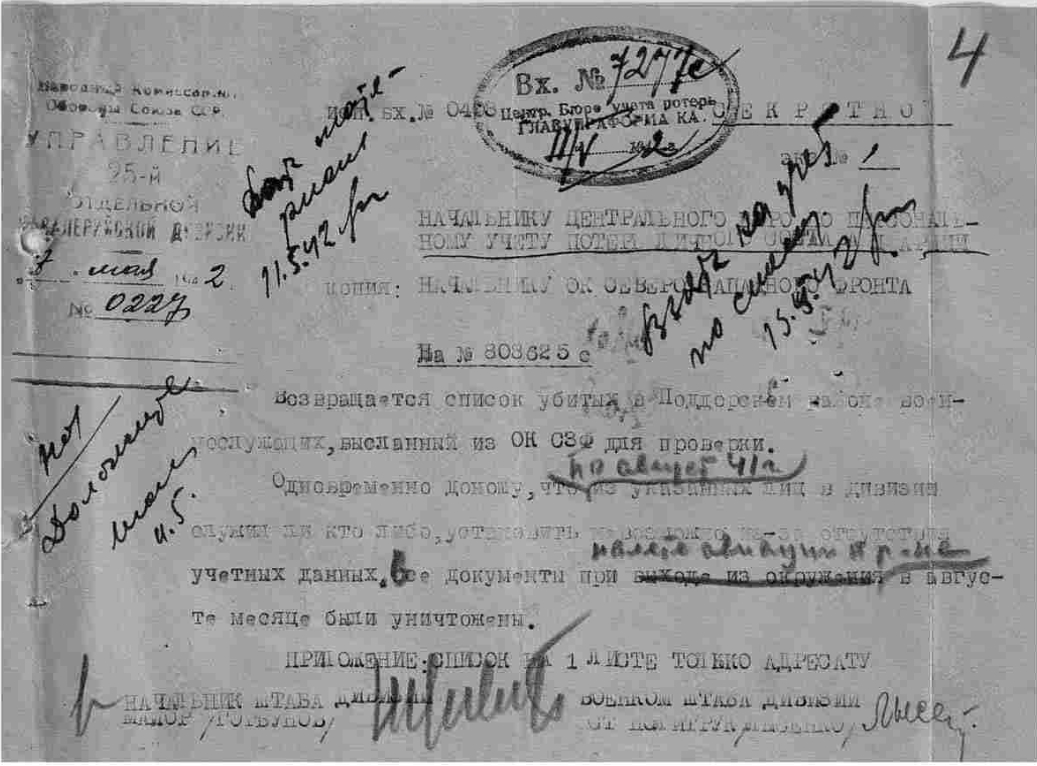 4
Народный Комиссариат
Обороны Союза ССР
УПРАВЛЕНИЕ
25-й
ОТДЕЛЬНОЙ
КАВАЛЕРИЙСКОЙ ДИВИЗИИ
8. мая 1942.
№ 0227
вх. №
Вх. № 7277с
Центр. Бюро учета потерь
ГЛАВУПРАФОРМА КА.
СЕКРЕТНО
экз № 1
11.5.42
НАЧАЛЬНИКУ ЦЕНТРАЛЬНОГО БЮРО ПО ПЕРСОНАЛЬ-
НОМУ УЧЕТУ ПОТЕРЬ ЛИЧНОГО СОСТАВА
КОПИЯ: НАЧАЛЬНИКУ ОК СЕВЕРО ЗАПАДНОГО ФРОНТА
взять на учет
по списку
15.5.42
На № 808625 с
Возвращается список убитых в Поддорском районе воен-
нослужащих, высланный из ОК СЗФ для проверки.
по август 41 г
Одновременно доношу, что из указанных лиц в дивизии
служил ли кто либо, установить невозможно из-за отсутствия
налете авиации пр-ка
учетных данных. Все документы при выходе из окружения в авгус-
те месяце были уничтожены.
ПРИЛОЖЕНИЕ: СПИСОК НА 1 ЛИСТЕ ТОЛЬКО АДРЕСАТУ
НАЧАЛЬНИК ШТАБА ДИВИЗИИ
МАЙОР /ГОРБУНОВ/
ВОЕНКОМ ШТАБА ДИВИЗИИ
СТ ПОЛИТРУК /ЛЫСЕНКО/